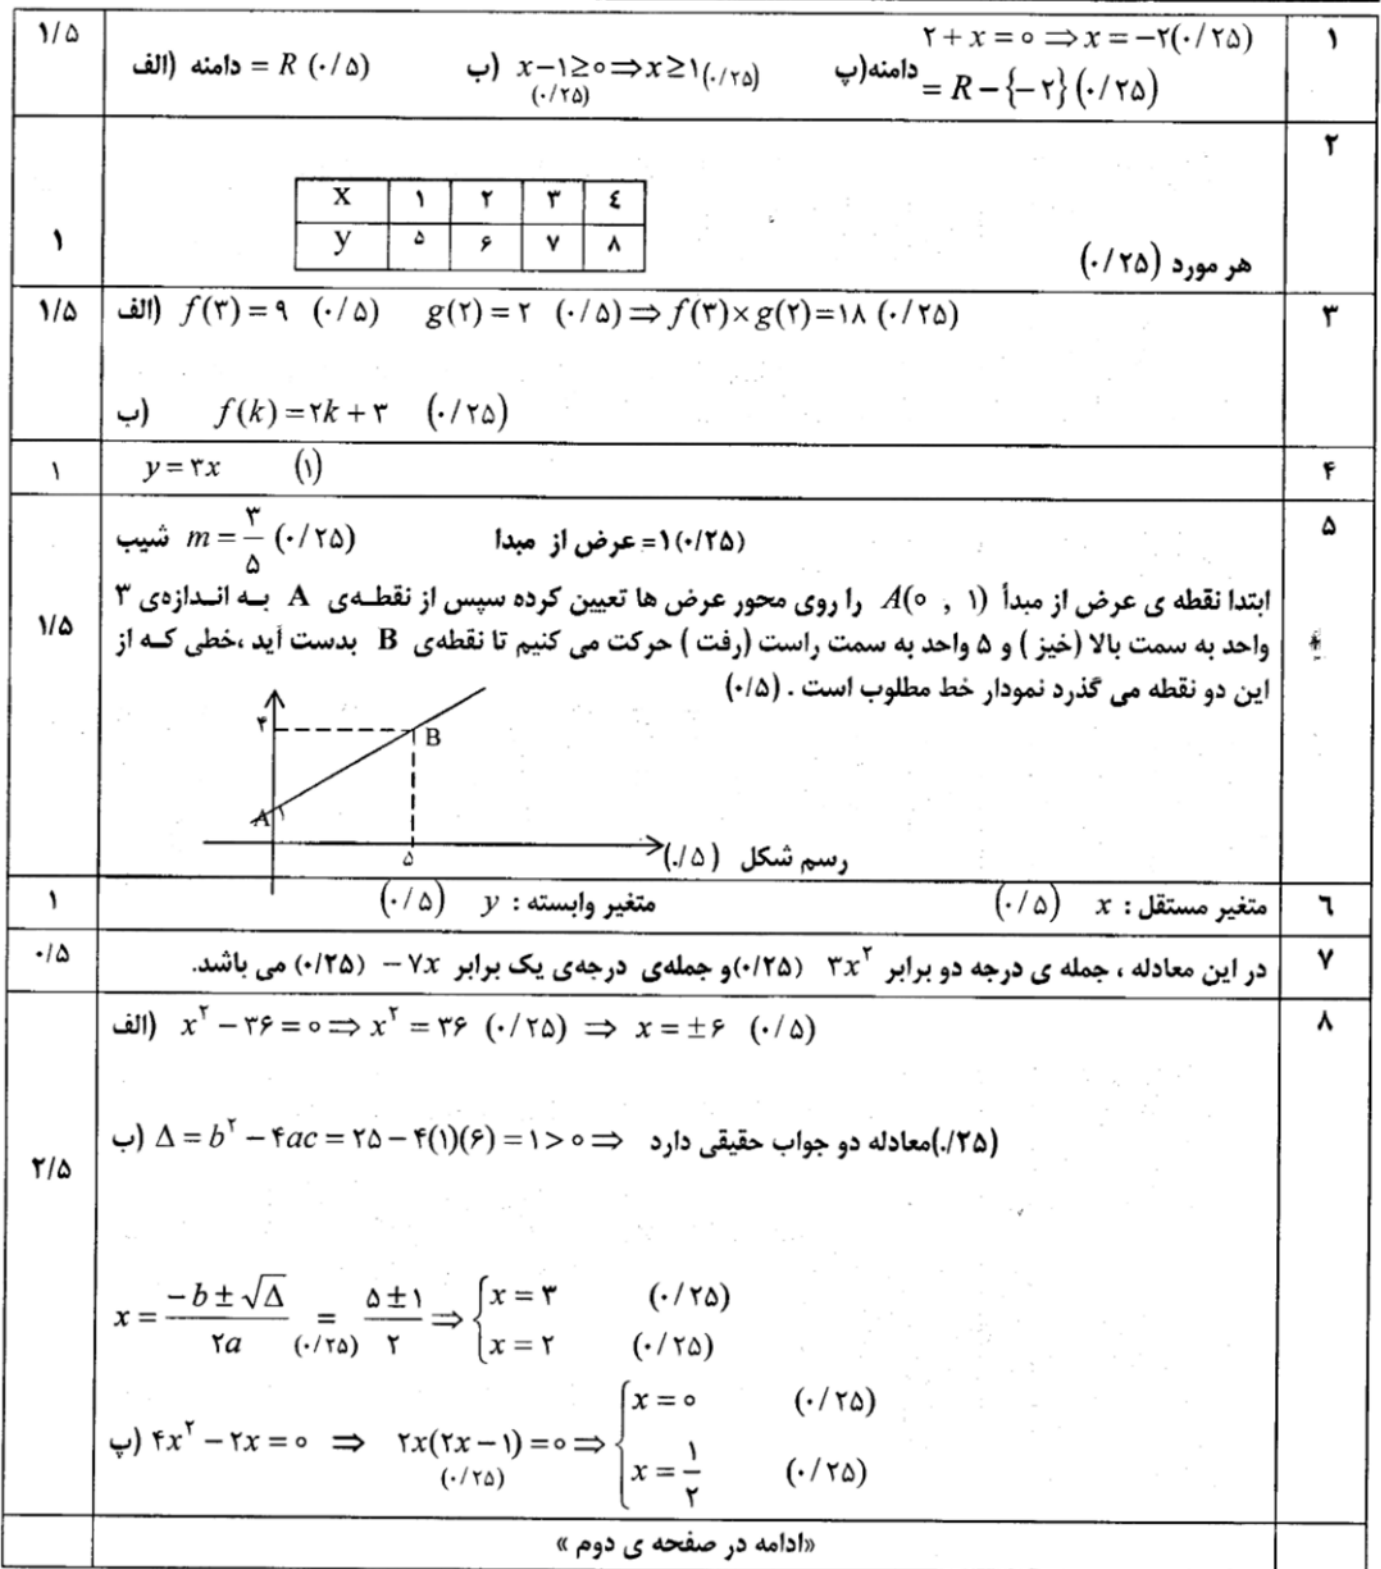 ۱
۲+x=۰⇒x=-۲(۰/۲۵)
الف) دامنه = R (۰/۵) ب) x-۱≥۰⇒x≥۱(۰/۲۵) پ)دامنه = R-{-۲}(۰/۲۵)
(۰/۲۵)
۱/۵
۲
X ۱ ۲ ۳ ٤
y ۵ ۶ ۷ ۸
هر مورد (۰/۲۵)
۱
۳
الف) f(۳)=۹ (۰/۵) g(۲)=۲ (۰/۵)⇒f(۳)×g(۲)=۱۸ (۰/۲۵)
ب) f(k)=۲k+۳ (۰/۲۵)
۱/۵
۴
y=۳x (۱)
۱
۵
شیب m=۳/۵ (۰/۲۵) عرض از مبدا =۱(۰/۲۵)
ابتدا نقطه ی عرض از مبدأ A(۰ , ۱) را روی محور عرض ها تعیین کرده سپس از نقطه‌ی A به اندازه‌ی ۳
واحد به سمت بالا (خیز ) و ۵ واحد به سمت راست (رفت ) حرکت می کنیم تا نقطه‌ی B بدست آید ،خطی که از
این دو نقطه می گذرد نمودار خط مطلوب است . (۰/۵)
۴
B
A ۱
۵
رسم شکل (۰/۵)
۱/۵
٦
متغیر مستقل : x (۰/۵) متغیر وابسته : y (۰/۵)
۱
۷
در این معادله ، جمله ی درجه دو برابر ۳x^۲ (۰/۲۵)و جمله‌ی درجه‌ی یک برابر -۷x (۰/۲۵) می باشد.
۰/۵
۸
الف) x^۲-۳۶=۰⇒x^۲=۳۶ (۰/۲۵) ⇒ x=±۶ (۰/۵)
ب) Δ=b^۲-۴ac=۲۵-۴(۱)(۶)=۱>۰⇒ معادله دو جواب حقیقی دارد(۰/۲۵)
x=(-b±√Δ)/۲a = (۵±۱)/۲ ⇒ {x=۳ (۰/۲۵)
(۰/۲۵) x=۲ (۰/۲۵)
پ) ۴x^۲-۲x=۰ ⇒ ۲x(۲x-۱)=۰⇒{x=۰ (۰/۲۵)
(۰/۲۵) x=۱/۲ (۰/۲۵)
۲/۵
«ادامه در صفحه ی دوم »